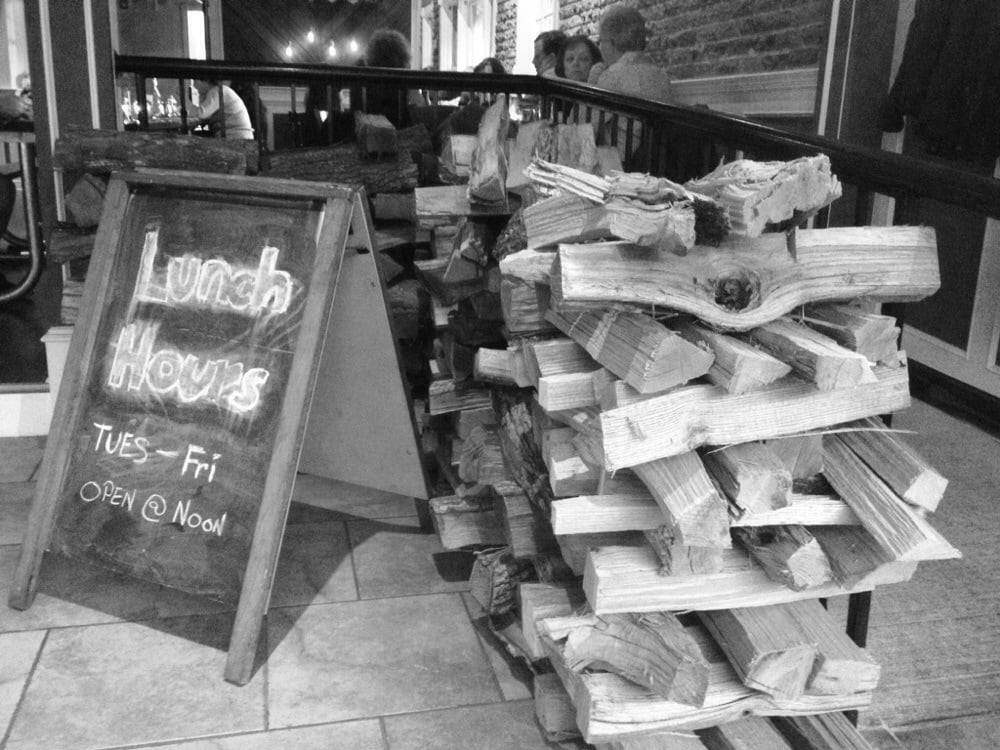 Lunch
Hours
TUES - Fri
OPEN @ NOON